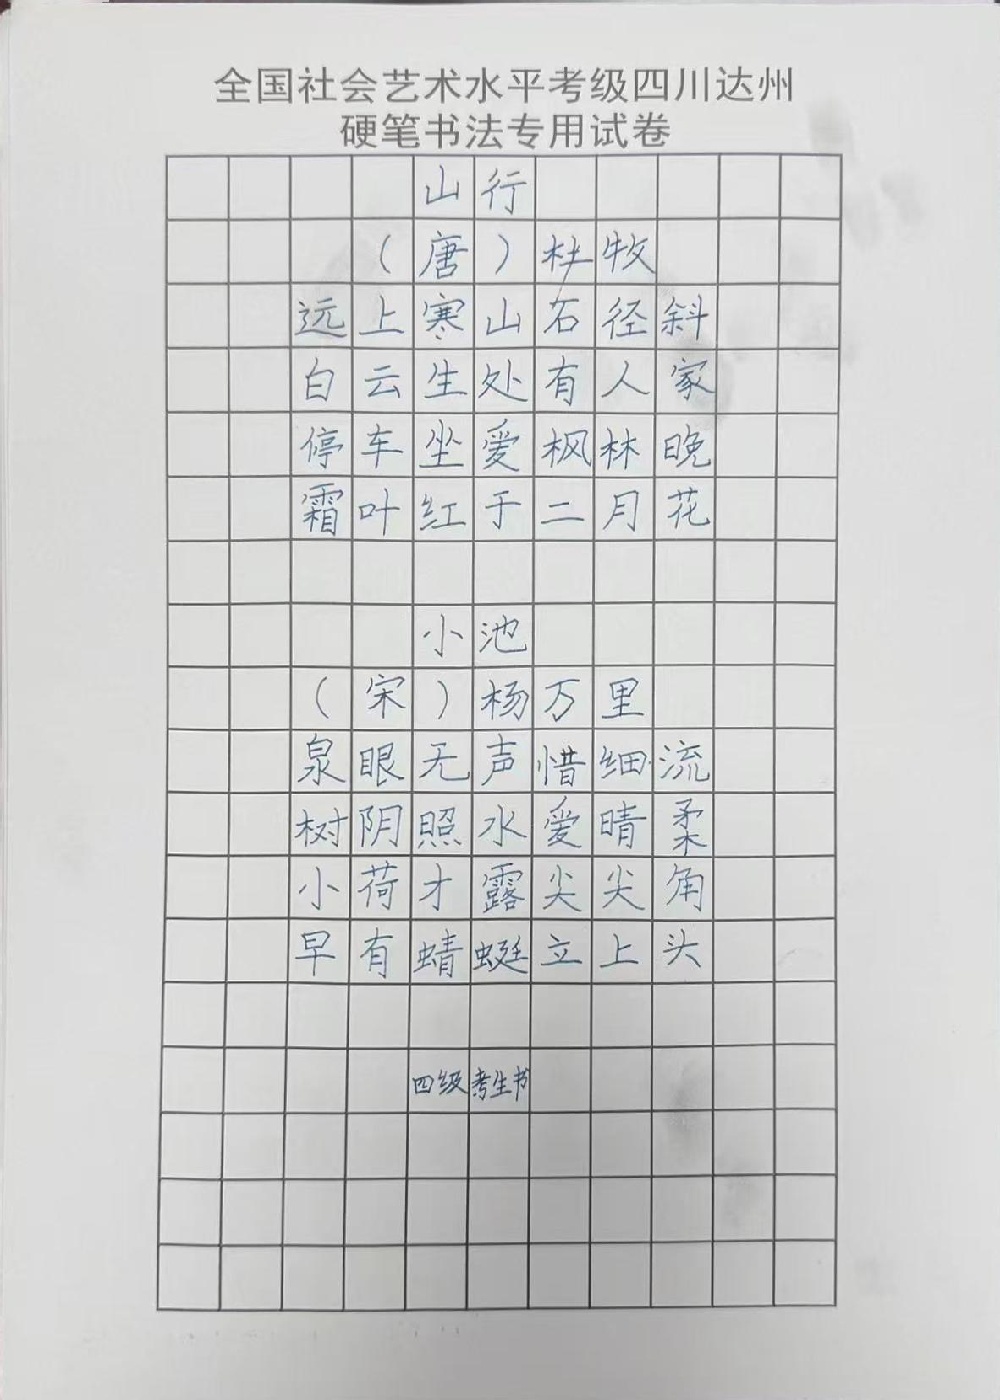 全国社会艺术水平考级四川达州
硬笔书法专用试卷
山行
（唐）杜牧
远上寒山石径斜
白云生处有人家
停车坐爱枫林晚
霜叶红于二月花
小池
（宋）杨万里
泉眼无声惜细流
树阴照水爱晴柔
小荷才露尖尖角
早有蜻蜓立上头
四级考生书